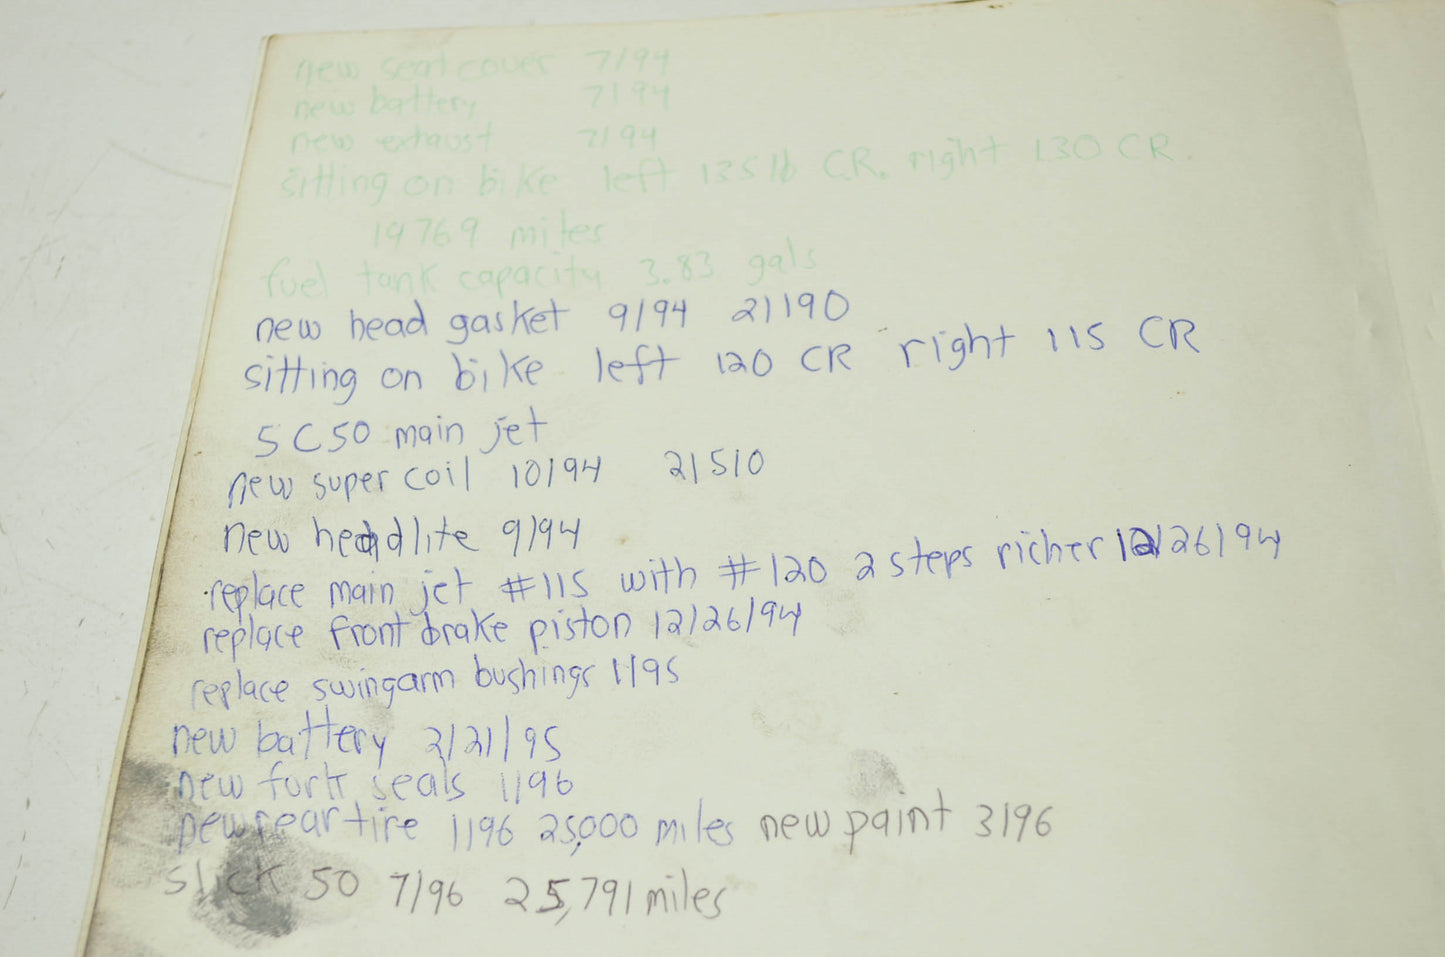 new seat cover 7/94
new battery 7/94
new exhaust 7/94
sitting on bike left 135 lb CR. right 130 CR.
19769 miles
fuel tank capacity 3.83 gals
new head gasket 9/94 21190
sitting on bike left 120 CR right 115 CR
5 C50 main jet
new super coil 10/94 21510
new headlite 9/94
replace main jet #115 with #120 2 steps richer 12/26/94
replace front brake piston 12/26/94
replace swingarm bushings 1/95
new battery 2/21/95
new fork seals 1/96
new rear tire 1/96 25,000 miles new paint 3/96
slick 50 7/96 25,791 miles